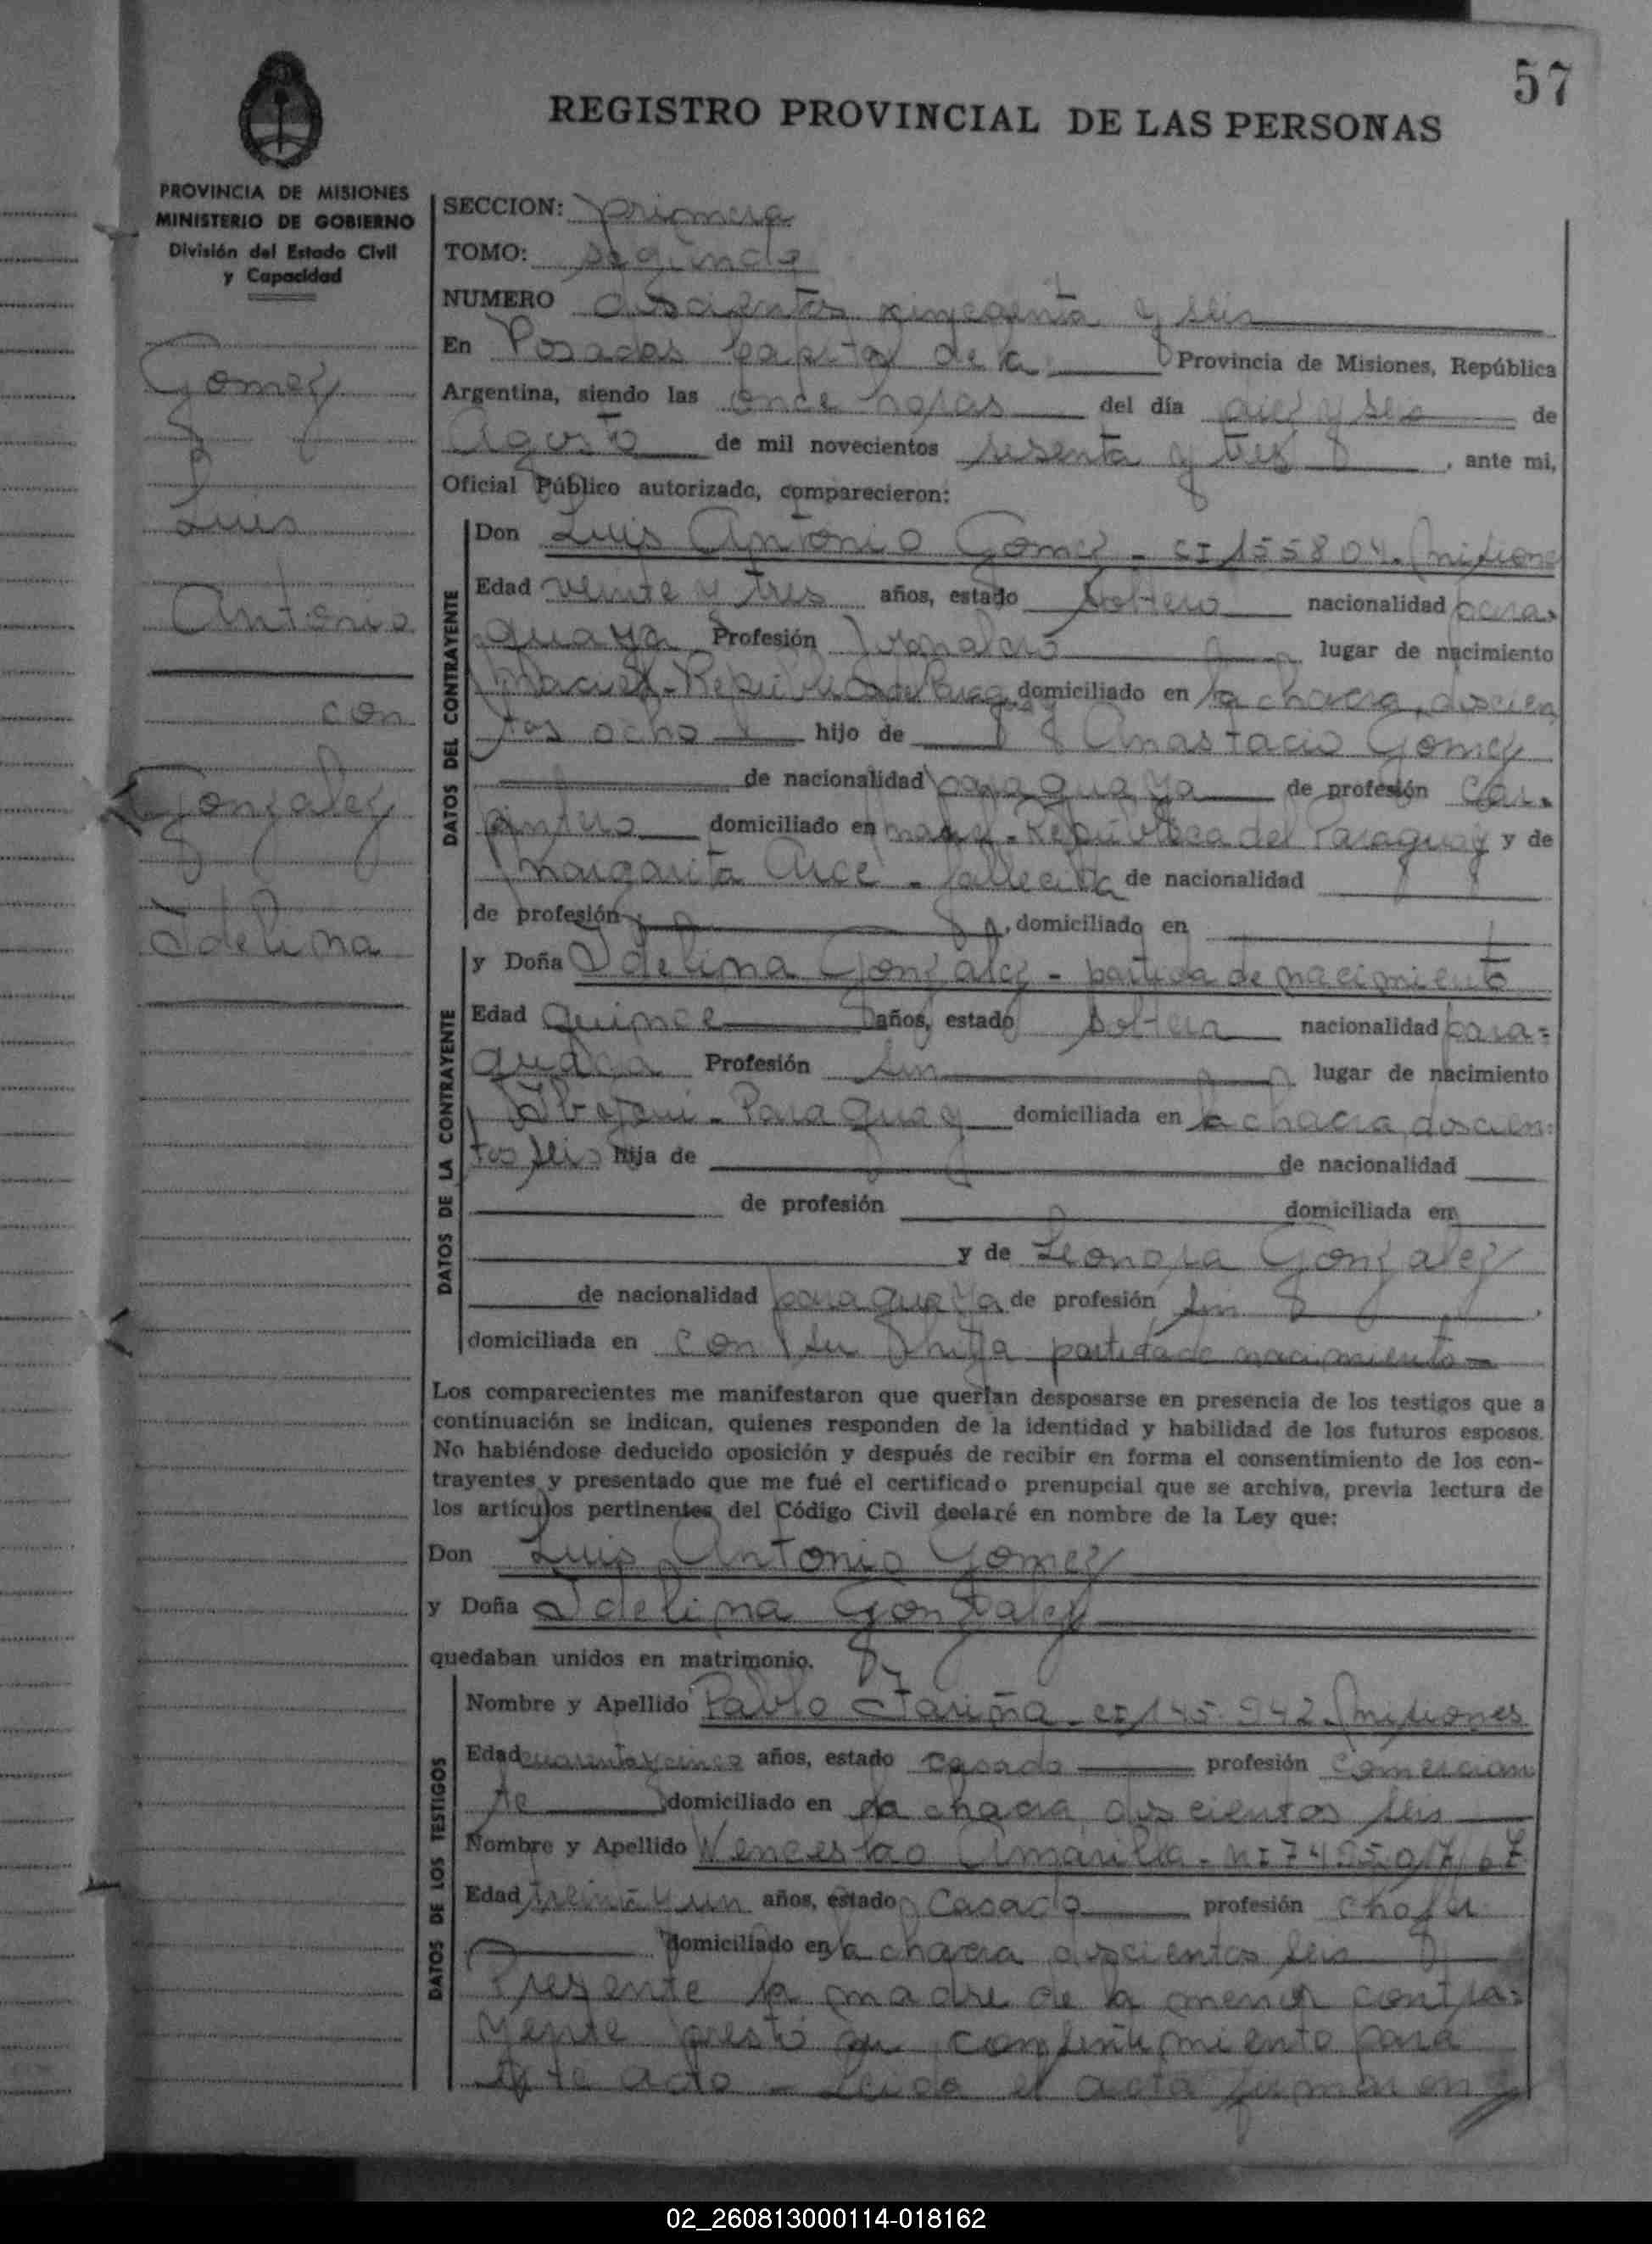 57
REGISTRO PROVINCIAL DE LAS PERSONAS
PROVINCIA DE MISIONES
MINISTERIO DE GOBIERNO
División del Estado Civil
y Capacidad
Gomez
Luis
Antonio
con
Gonzalez
Idelina
SECCION: primera
TOMO: segundo
NUMERO doscientos cincuenta y seis
En Posadas Capital de la Provincia de Misiones, República
Argentina, siendo las once horas del día diez y seis de
Agosto de mil novecientos sesenta y tres, ante mi,
Oficial Público autorizado, comparecieron:
DATOS DEL CONTRAYENTE
Don Luis Antonio Gomez - CI 155804. Misiones
Edad veinte y tres años, estado soltero nacionalidad para-
guaya Profesión Jornalero lugar de nacimiento
República del domiciliado en la chacra doscien
tos ocho hijo de Anastacio Gomez
de nacionalidad paraguaya de profesión Car-
pintero domiciliado en República del Paraguay y de
Margarita Arce - fallecida de nacionalidad
de profesión, domiciliado en
DATOS DE LA CONTRAYENTE
y Doña Idelina Gonzalez - partida de nacimiento
Edad quince años, estado soltera nacionalidad para=
guaya Profesión sin lugar de nacimiento
Paraguay domiciliada en la chacra doscien-
tos seis hija de de nacionalidad
de profesión domiciliada en
y de Leonora Gonzalez
de nacionalidad paraguaya de profesión sin,
domiciliada en con su hija partida de nacimiento
Los comparecientes me manifestaron que querían desposarse en presencia de los testigos que a
continuación se indican, quienes responden de la identidad y habilidad de los futuros esposos.
No habiéndose deducido oposición y después de recibir en forma el consentimiento de los con-
trayentes y presentado que me fué el certificado prenupcial que se archiva, previa lectura de
los artículos pertinentes del Código Civil declaré en nombre de la Ley que:
Don Luis Antonio Gomez
y Doña Idelina Gonzalez
quedaban unidos en matrimonio.
DATOS DE LOS TESTIGOS
Nombre y Apellido Pablo Fariña - CI 145.942 Misiones
Edad cuarenta y cinco años, estado casado profesión Comercian
te domiciliado en la chacra doscientos seis
Nombre y Apellido Wenceslao Amarilla - MI
Edad treinta y un años, estado Casado profesión chofer
domiciliado en la chacra doscientos seis
Presente la madre de la menor contra-
yente prestó su consentimiento para
este acto - Leida el acta firmaron
02_260813000114-018162